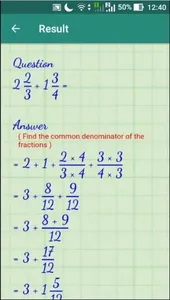 50% 12:40
Result
Question
2 2/3 + 1 3/4 =
Answer
( Find the common denominator of the
fractions )
= 2 + 1 + (2 × 4)/(3 × 4) + (3 × 3)/(4 × 3)
= 3 + 8/12 + 9/12
= 3 + (8 + 9)/12
= 3 + 17/12
= 3 + 1 5/12